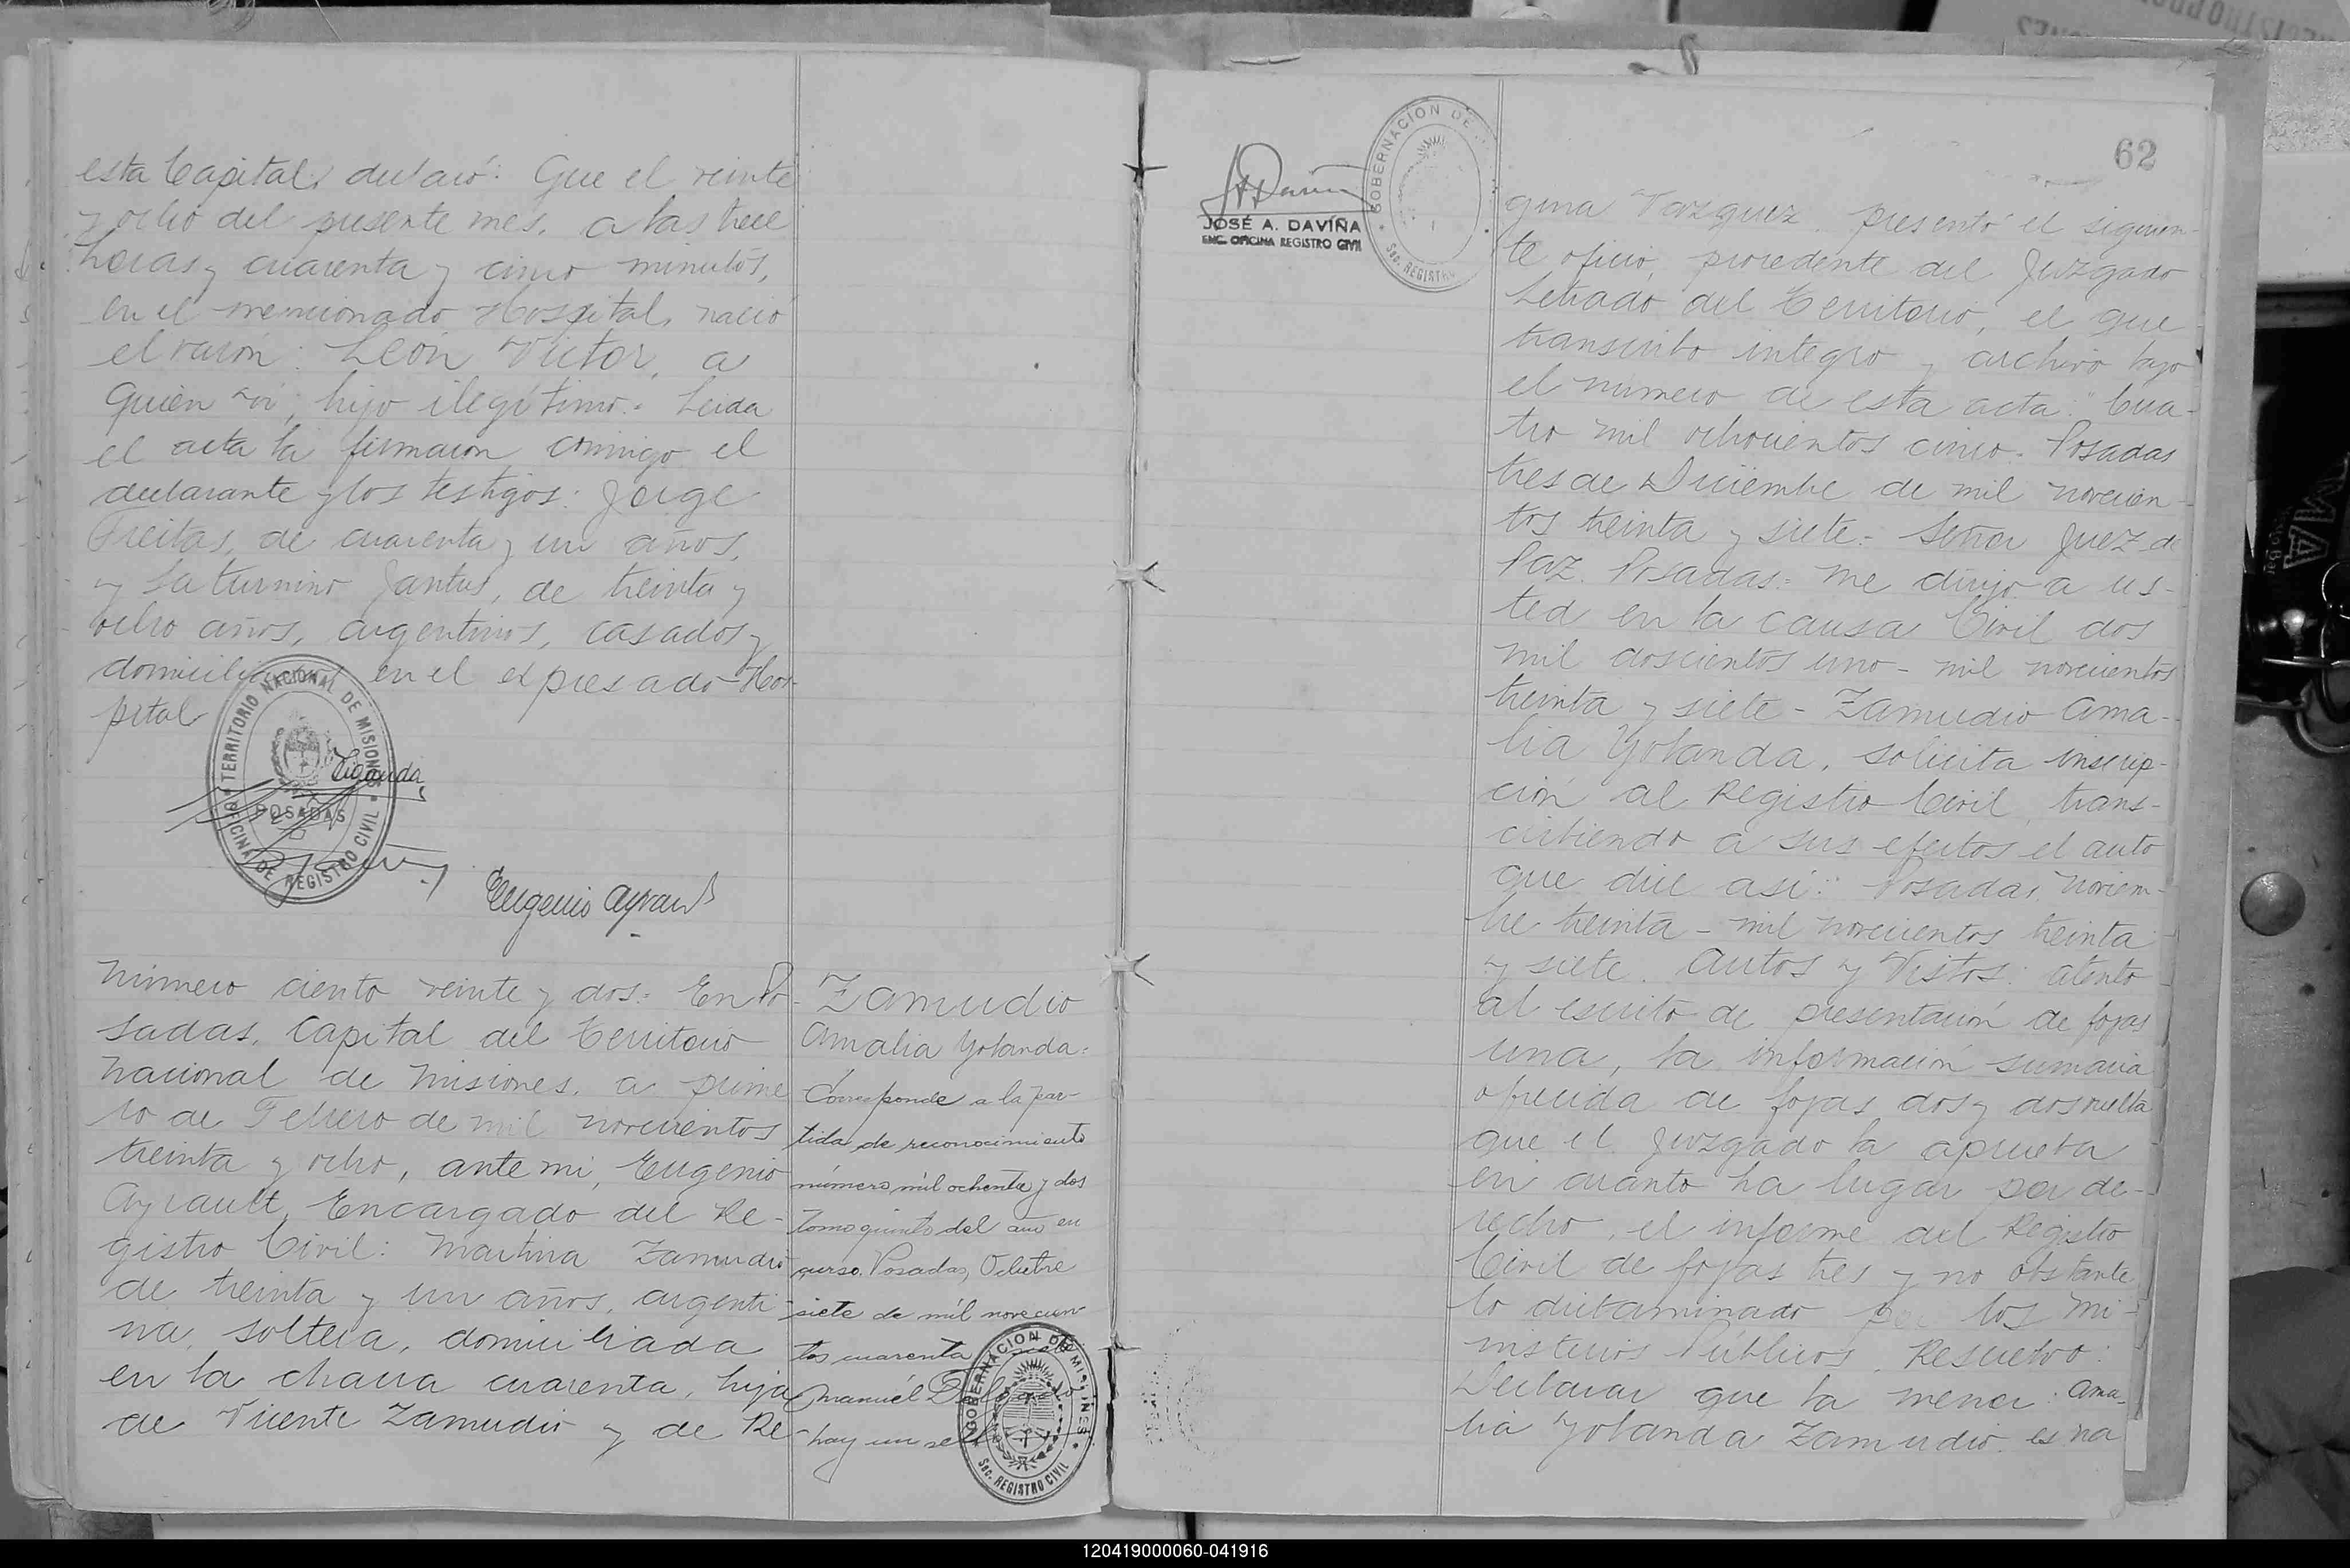 esta Capital, declaró: Que el veinte
y ocho del presente mes, a las trece
horas y cuarenta y cinco minutos,
en el mencionado Hospital, nació
el varón: León Victor, a
quien vi; hijo ilegítimo.- Leida
el acta la firmaron conmigo el
declarante y los testigos: Jorge
Freitas, de cuarenta y un años,
y Saturnino Jantus, de treinta y
ocho años, argentinos, casados y
domiciliados en el expresado Hos-
pital
TERRITORIO NACIONAL DE MISIONES
POSADAS
OFICINA DE REGISTRO CIVIL
Eugenio Ayrault
Número ciento veinte y dos: En Po-
sadas, Capital del Territorio
Nacional de Misiones, a prime
ro de Febrero de mil novecientos
treinta y ocho, ante mi, Eugenio
Ayrault, Encargado del Re-
gistro Civil: Martina Zamudio
de treinta y un años, argenti-
na, soltera, domiciliada
en la chacra cuarenta, hija
de Vicente Zamudio y de Re-
Zamudio
Amalia Yolanda:
Corresponde a la par-
tida de reconocimiento
número mil ochenta y dos
Tomo quinto del año en
curso. Posadas, Octubre
siete de mil novecien-
tos cuarenta
Manuel
hay un sello
GOBERNACION DE MISIONES
Sec. REGISTRO CIVIL
JOSÉ A. DAVIÑA
ENC. OFICINA REGISTRO CIVIL
GOBERNACION DE
Sec. REGISTRO
62
gina Vazquez presentó el siguien-
te oficio, procedente del Juzgado
Letrado del Territorio, el que
transcribo integro y archivo bajo
el número de esta acta: "Cua-
tro mil ochocientos cinco. Posadas
tres de Diciembre de mil novecien-
tos treinta y siete.- Señor Juez de
Paz. Posadas.- Me dirijo a us-
ted en la causa Civil dos
mil doscientos uno - mil novecientos
treinta y siete - Zamudio Ama-
lia Yolanda, solicita inscrip-
ción al Registro Civil, trans-
cribiendo a sus efectos el auto
que dice así: Posadas, Noviem-
bre treinta - mil novecientos treinta
y siete. Autos y Vistos: atento
al escrito de presentación de fojas
una, la información sumaria
ofrecida de fojas dos y dos vuelta
que el Juzgado la aprueba
en cuanto ha lugar por de-
recho, el informe del Registro
Civil de fojas tres y no obstante
lo dictaminado por los Mi-
nisterios Públicos. Resuelvo:
Declarar que la menor: Ama-
lia Yolanda Zamudio es na
120419000060-041916